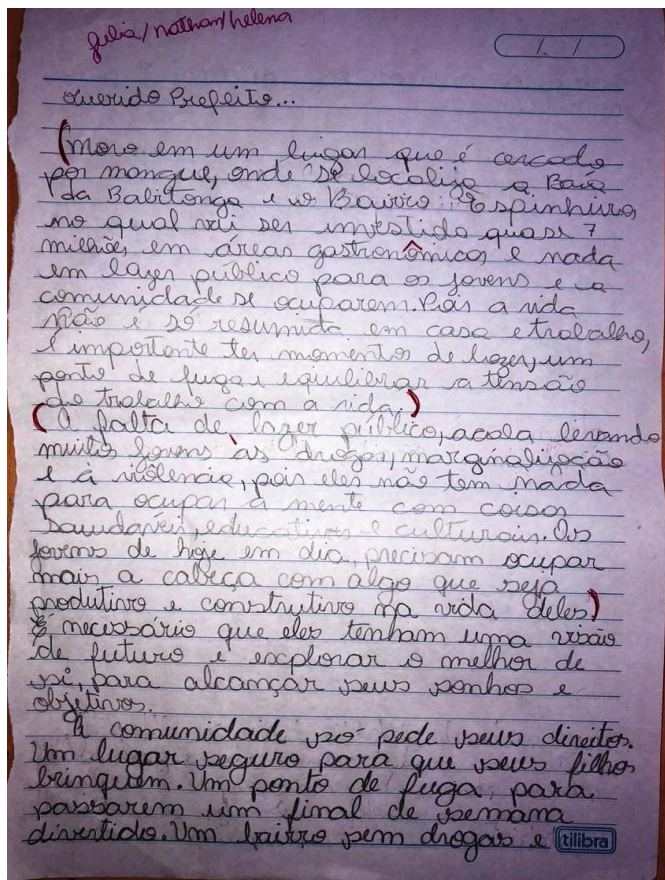 julia/nathan/helena
/ /
Querido Prefeito...
(Moro em um lugar que é cercado
por mangue, onde se localiza a Baía
da Babitonga e o Bairro: Espinheiros
no qual vai ser investido quase 7
milhões em áreas gastronômicas e nada
em lazer público para os jovens e a
comunidade se ocuparem. Pois a vida
não é só resumida em casa e trabalho,
é importante ter momentos de lazer, um
ponto de fuga e equilibrar a tensão
do trabalho com a vida.)
(A falta de lazer público, acaba levando
muitos jovens às drogas, marginalização
e à violência, pois eles não tem nada
para ocupar a mente com coisas
saudáveis, educativas e culturais. Os
jovens de hoje em dia, precisam ocupar
mais a cabeça com algo que seja
produtivo e construtivo na vida deles)
É necessário que eles tenham uma visão
de futuro e explorar o melhor de
si, para alcançar seus sonhos e
objetivos.
A comunidade só pede seus direitos.
Um lugar seguro para que seus filhos
brinquem. Um ponto de fuga, para
passarem um final de semana
divertido. Um bairro sem drogas e
tilibra